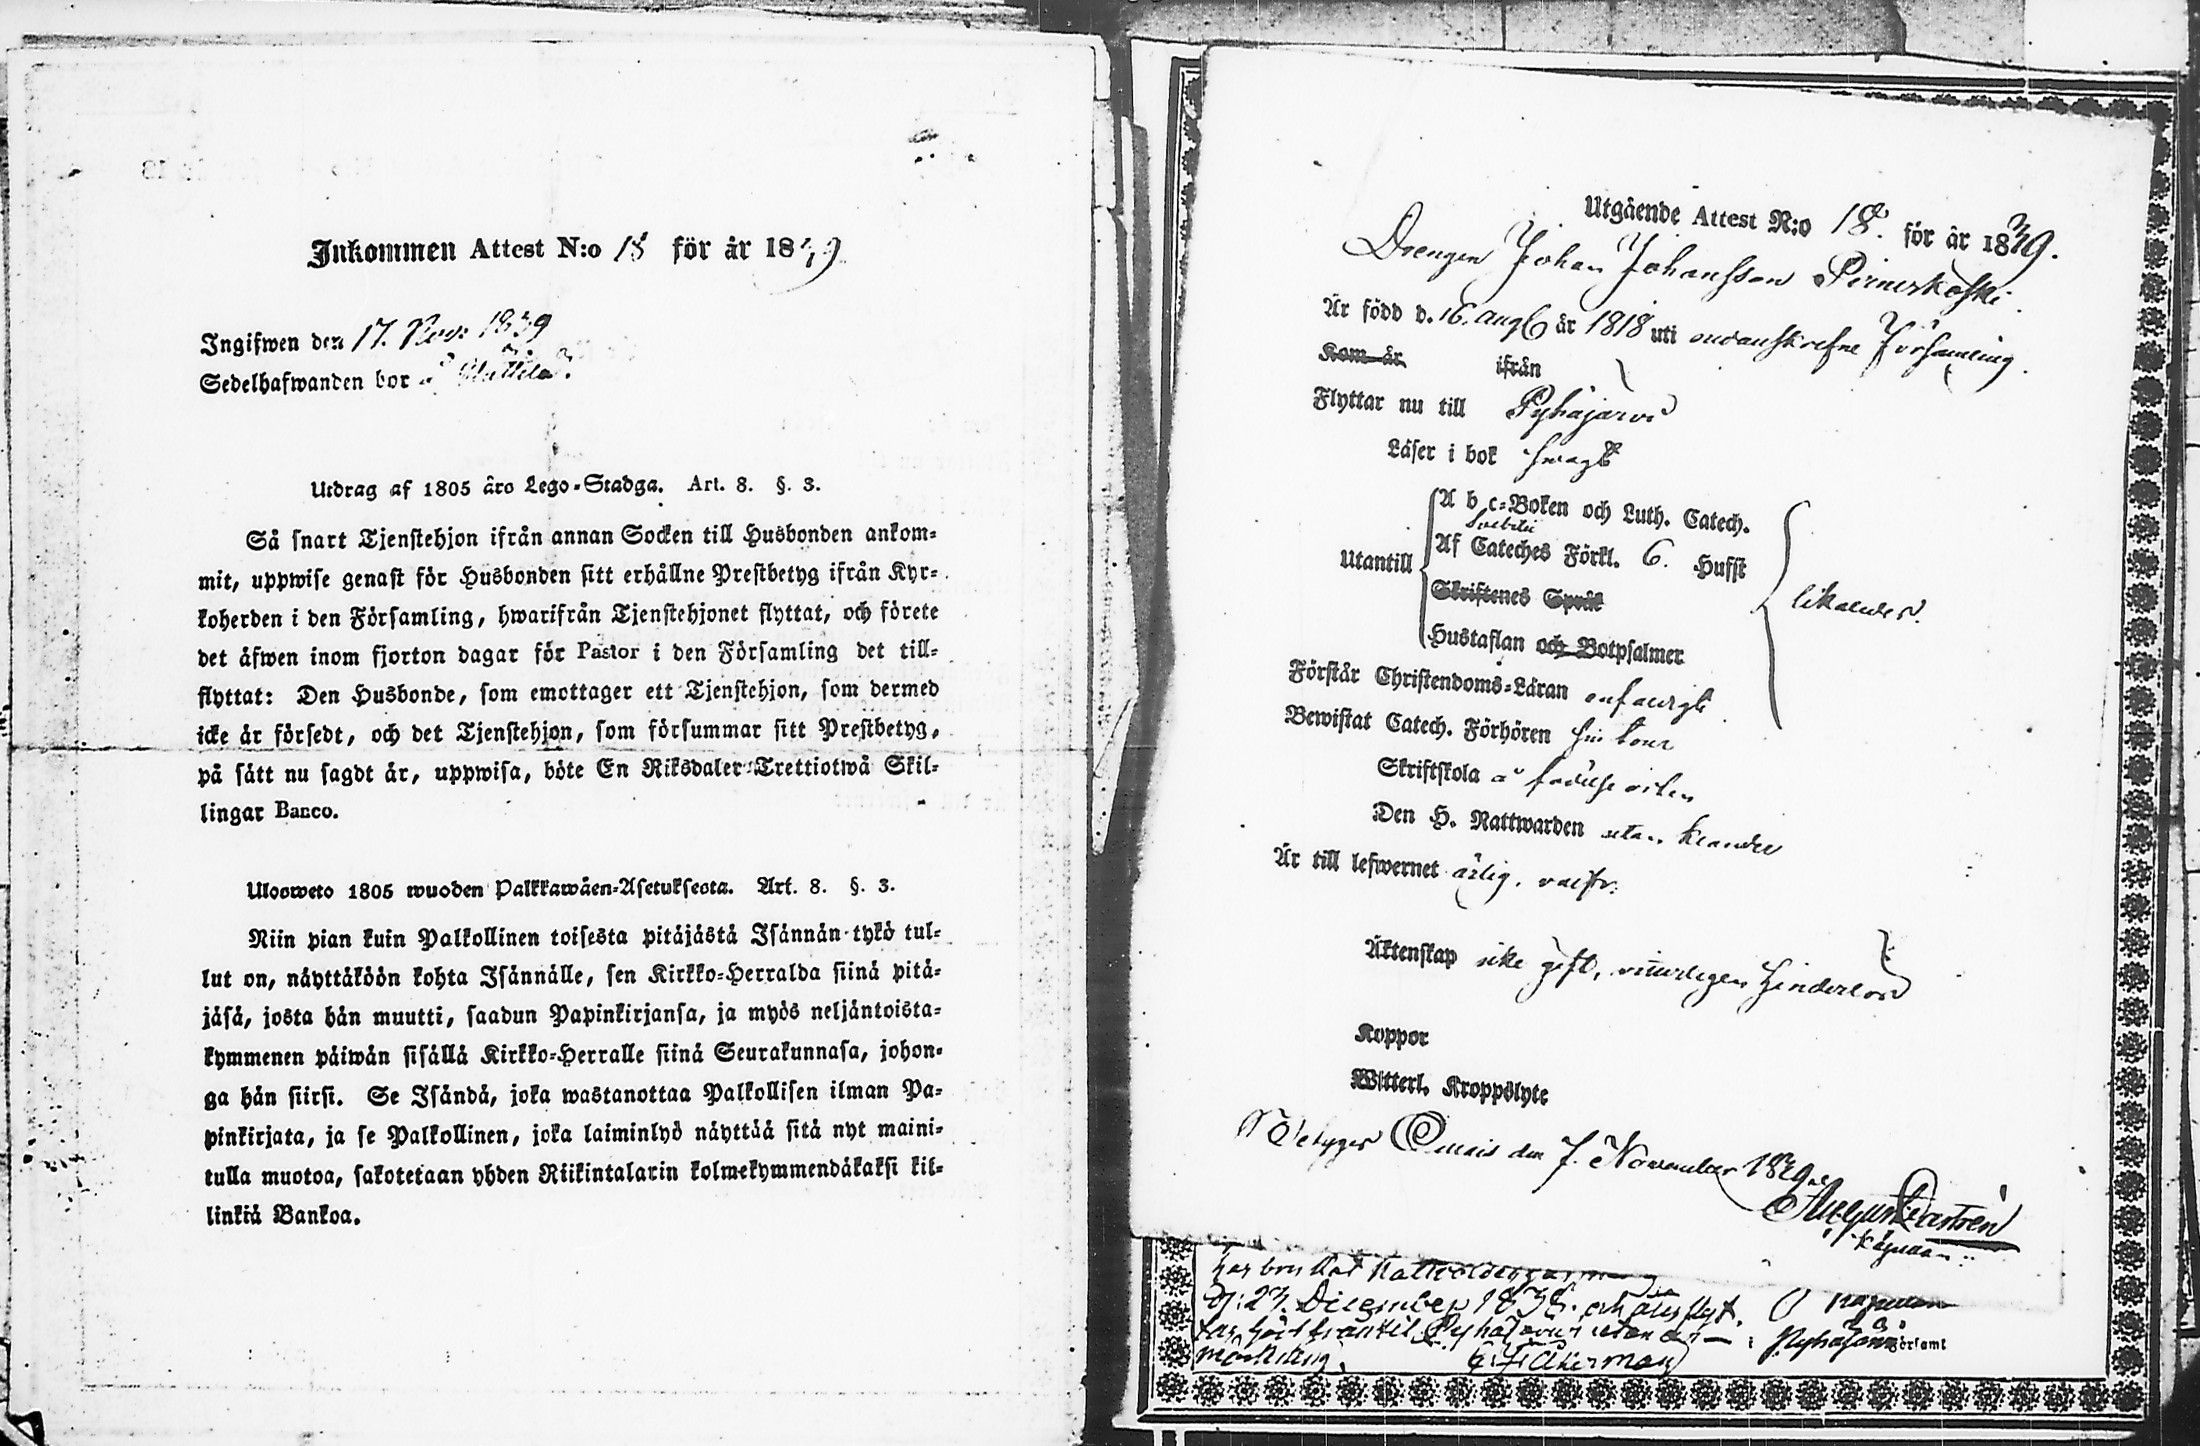 Inkommen Attest N:o 18 för år 1839
Ingifwen den 17. Nov: 1839
Sedelhafwanden bor å Mattila
Utdrag af 1805 års Lego-Stadga. Art. 8. §. 3.
Så snart Tjenstehjon ifrån annan Socken till Husbonden ankom-
mit, uppwise genast för Husbonden sitt erhållne Prestbetyg ifrån Kyr-
koherden i den Församling, hwarifrån Tjenstehjonet flyttat, och förete
det äfwen inom fjorton dagar för Pastor i den Församling det till-
flyttat: Den Husbonde, som emottager ett Tjenstehjon, som dermed
icke är försedt, och det Tjenstehjon, som försummar sitt Prestbetyg,
på sätt nu sagdt är, uppwisa, böte En Riksdaler Trettiotwå Skil-
lingar Banco.
Ulosweto 1805 wuoden Palkkawäen-Asetuksesta. Art. 8. §. 3.
Niin pian kuin Palkollinen toisesta pitäjästä Isännän tykö tul-
lut on, näyttäköön kohta Isännälle, sen Kirkko-Herralda siinä pitä-
jäsä, josta hän muutti, saadun Papinkirjansa, ja myös neljäntoista-
kymmenen päiwän sisällä Kirkko-Herralle siinä Seurakunnasa, johon-
ga hän siirsi. Se Isändä, joka wastanottaa Palkollisen ilman Pa-
pinkirjata, ja se Palkollinen, joka laiminlyö näyttää sitä nyt maini-
tulla muotoa, sakotetaan yhden Riikintalarin kolmekymmendäkaksi kil-
linkiä Bankoa.
Utgående Attest N:o 18. för år 1839.
Drengen Johan Johansson Pirneskoski
Är född d. 16. Aug är 1818 uti undanskrefne Församling.
Kom år ifrån
Flyttar nu till Pyhäjärvi
Läser i bok swagt
A b c-Boken och Luth. Catech.
Svebilii
Utantill Af Cateches Förkl. 6. Hufst likaledes.
Skriftenes Språk
Hustaflan och Botpsalmer
Förstår Christendoms-Läran enfaldigt
Bewistat Catech. Förhören
Skriftskola å födelse orten
Den H. Nattwarden utan klander
Är till lefwernet ärlig.
Äktenskap icke gift, hinderlös
Koppor
Witterl. Kroppslyte
Betygas den 7. November 1839.
har bevistat Nattvardsgång
d: 23. December 1838.
Pyhäjärvi utan an-
märkning. Åkerman
Pyhäjärvi Förs:amt